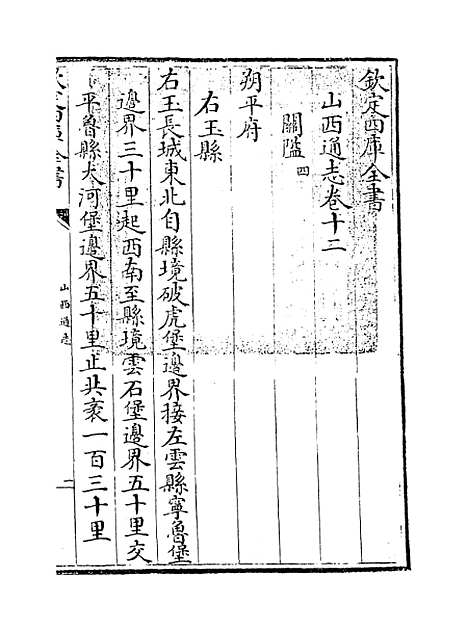 欽定四庫全書
山西通志卷十二
關隘四
朔平府
右玉縣
右玉長城東北自縣境破虎堡邊界接左雲縣寧魯堡
邊界三十里起西南至縣境雲石堡邊界五十里交
平魯縣大河堡邊界五十里止共袤一百三十里
欽定四庫全書
山西通志